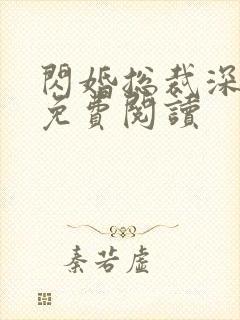 閃婚総裁深
免費閱讀
秦若虛